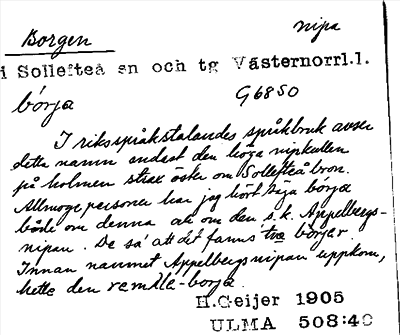 Borgen
nipa
i Sollefteå sn och tg Västernorrl.l.
börja
G6850
I riksspråkstalandes språkbruk avser
detta namn endast den höga nipkullen
på holmen strax öster om Sollefteå bron.
Allmogepersoner har jag hört säga börja
både om denna och om den s.k. Appelbergs-
nipan. De sa att det fanns två börjer
Innan namnet Appelbergsnipan uppkom,
hette den börja
H.Geijer 1905
ULMA 508:40